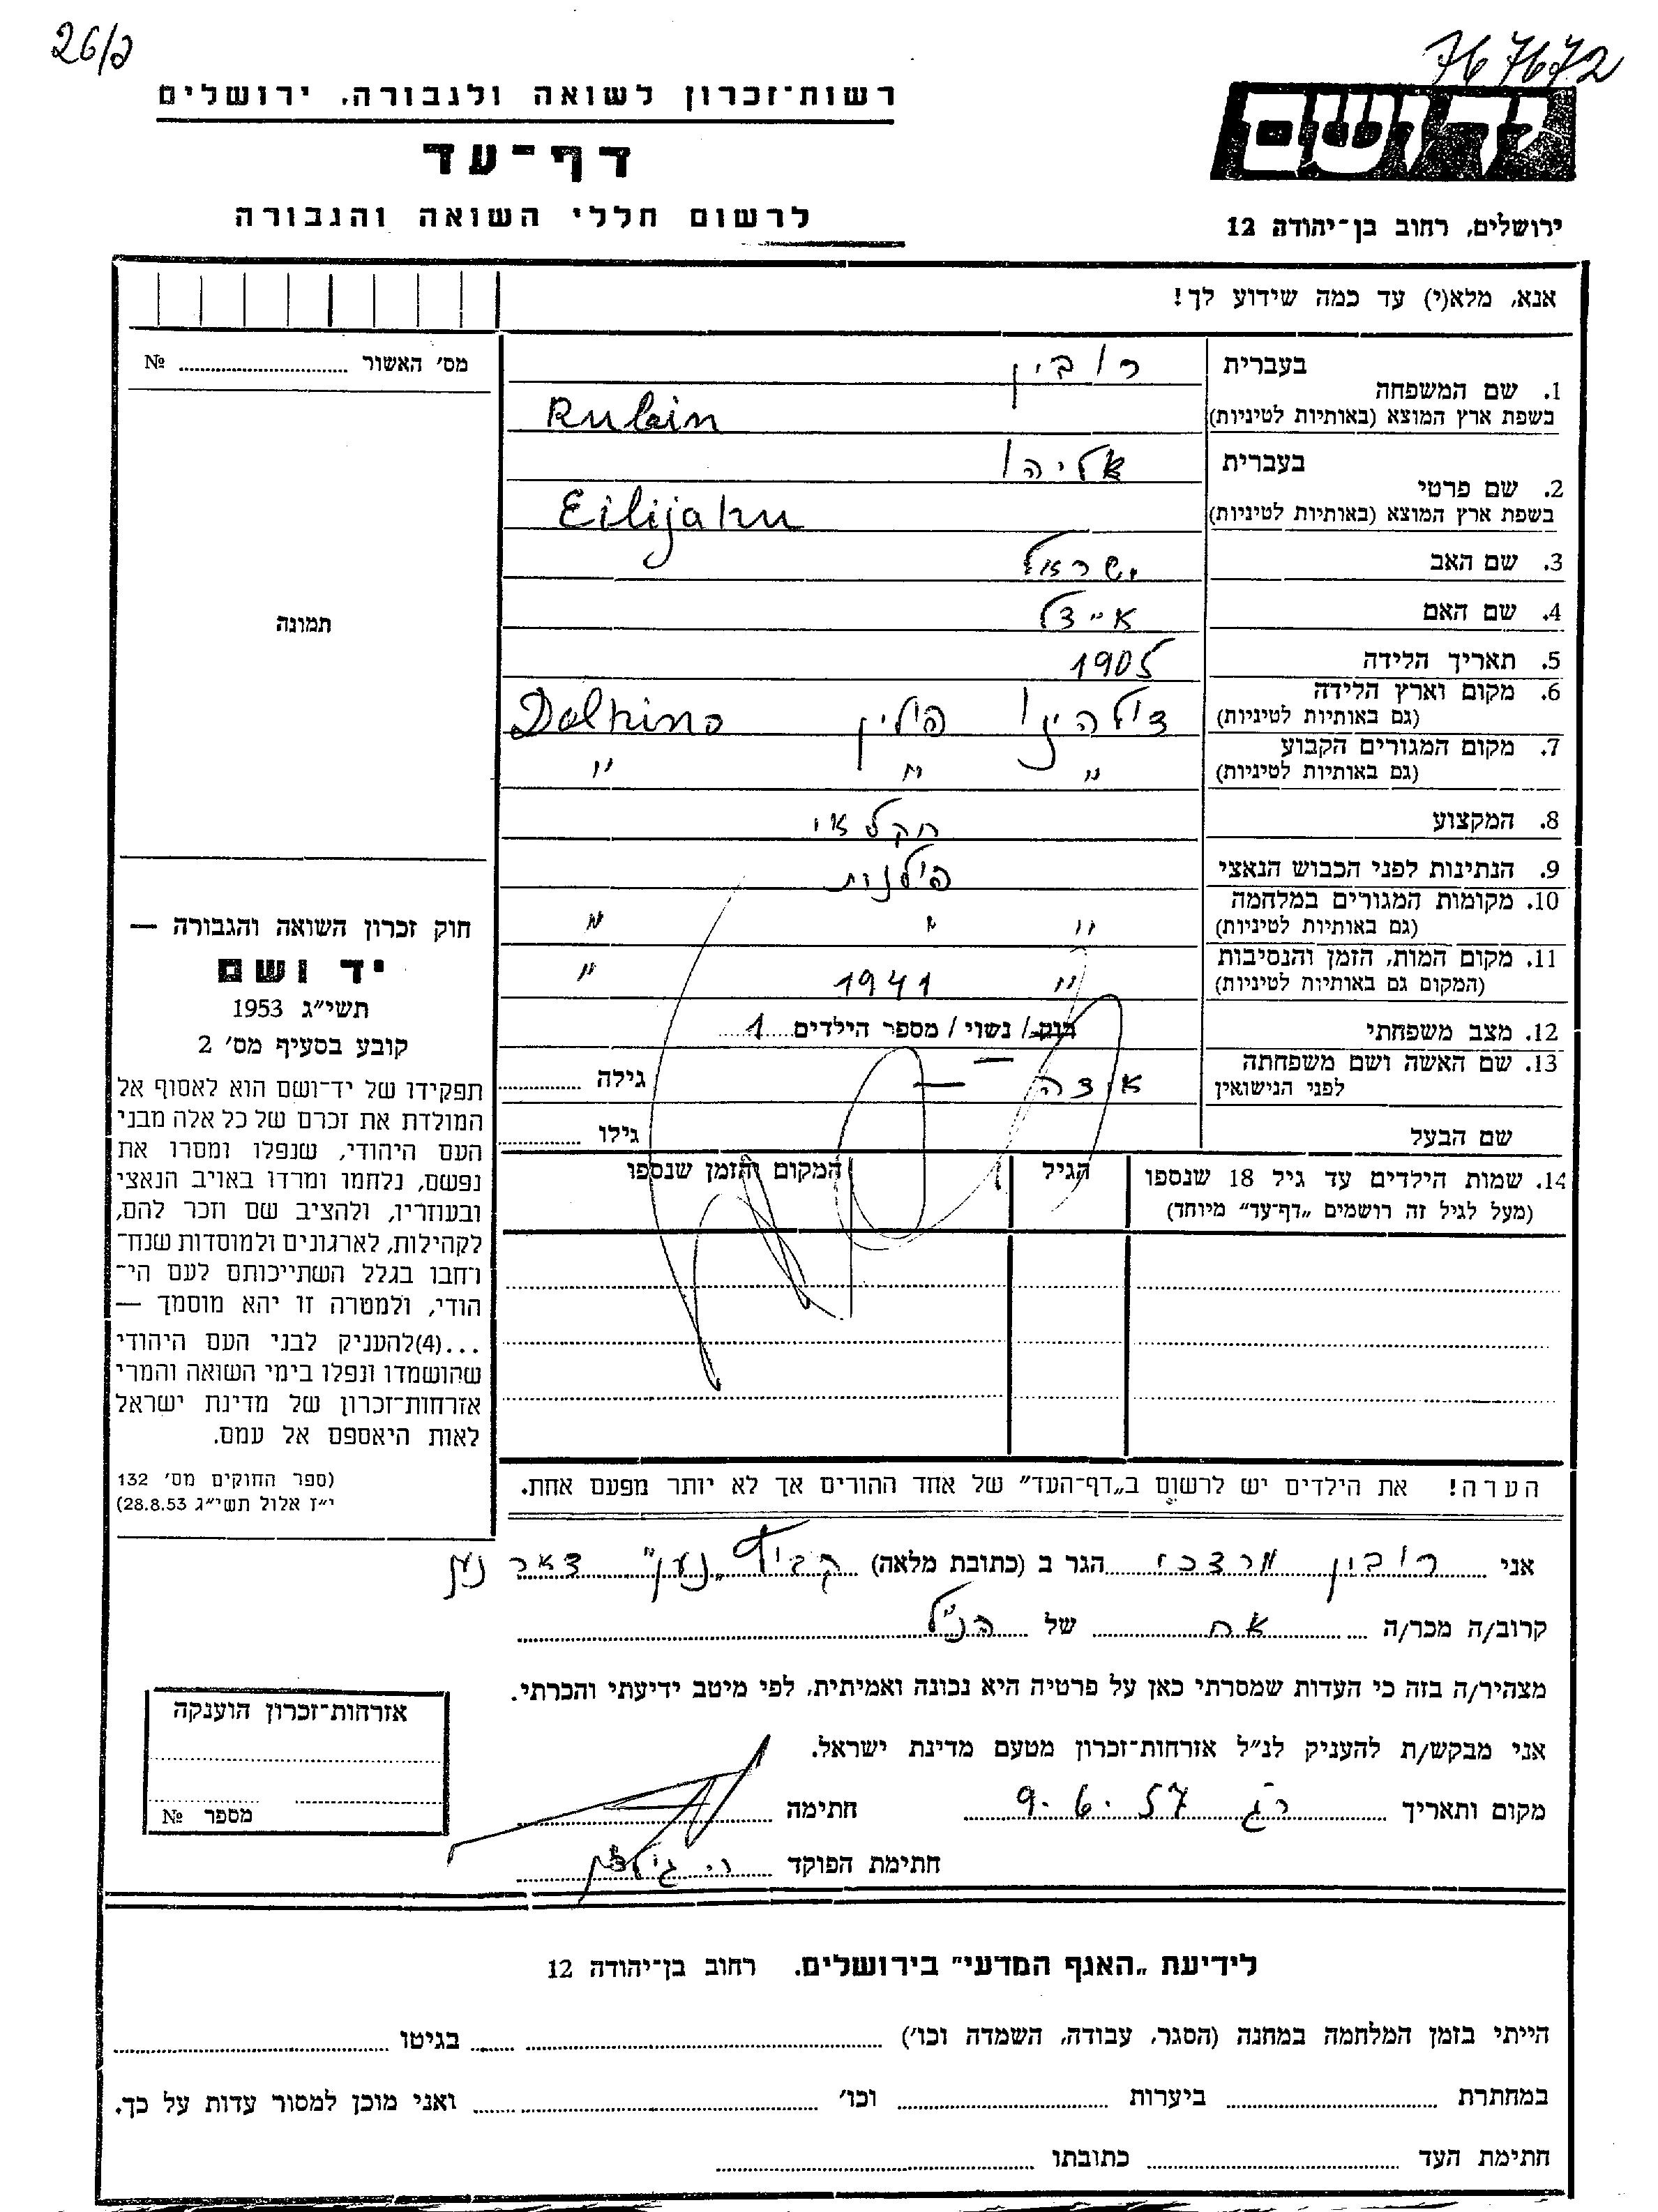 26/ג
767672
יד ושם
רשות־זכרון לשואה ולגבורה, ירושלים
דף־עד
לרשום חללי השואה והגבורה
ירושלים, רחוב בן־יהודה 12
אנא, מלא(י) עד כמה שידוע לך!
מס׳ האשור № 
1. שם המשפחה בעברית רובין
בשפת ארץ המוצא (באותיות לטיניות) Rubin
2. שם פרטי בעברית אליהו
בשפת ארץ המוצא (באותיות לטיניות) Eilijahu
3. שם האב ישראל
4. שם האם איידל
5. תאריך הלידה 1905
6. מקום וארץ הלידה
(גם באותיות לטיניות) פולין Dolhino
7. מקום המגורים הקבוע
(גם באותיות לטיניות) " " "
8. המקצוע חקלאי
9. הנתינות לפני הכבוש הנאצי פולנית
10. מקומות המגורים במלחמה
(גם באותיות לטיניות) " " "
11. מקום המות, הזמן והנסיבות
(המקום גם באותיות לטיניות) " 1941 "
12. מצב משפחתי רווק / נשוי / מספר הילדים 1
13. שם האשה ושם משפחתה
לפני הנישואין — גילה
שם הבעל גילו
14. שמות הילדים עד גיל 18 שנספו הגיל המקום והזמן שנספו
(מעל לגיל זה רושמים „דף־עד" מיוחד)
הערה! את הילדים יש לרשום ב„דף־העד" של אחד ההורים אך לא יותר מפעם אחת.
תמונה
חוק זכרון השואה והגבורה —
יד ושם
תשי״ג 1953
קובע בסעיף מס׳ 2
תפקידו של יד־ושם הוא לאסוף אל
המולדת את זכרם של כל אלה מבני
העם היהודי, שנפלו ומסרו את
נפשם, נלחמו ומרדו באויב הנאצי
ובעוזריו, ולהציב שם וזכר להם,
לקהילות, לארגונים ולמוסדות שנח־
רחבו בגלל השתייכותם לעם הי־
הודי, ולמטרה זו יהא מוסמך —
...(4)להעניק לבני העם היהודי
שהושמדו ונפלו בימי השואה והמרי
אזרחות־זכרון של מדינת ישראל
לאות היאספם אל עמם.
(ספר החוקים מס׳ 132
י״ז אלול תשי״ג 28.8.53)
אני רובין מרדכי הגר ב (כתובת מלאה) קבוץ „נען" דאר נען
קרוב/ה מכר/ה אח של הנ״ל
מצהיר/ה בזה כי העדות שמסרתי כאן על פרטיה היא נכונה ואמיתית, לפי מיטב ידיעתי והכרתי.
אני מבקש/ת להעניק לנ״ל אזרחות־זכרון מטעם מדינת ישראל.
מקום ותאריך 9.6.57 חתימה
חתימת הפוקד
אזרחות־זכרון הוענקה
מספר №
לידיעת „האגף המדעי" בירושלים. רחוב בן־יהודה 12
הייתי בזמן המלחמה במחנה (הסגר, עבודה, השמדה וכו׳) בגיטו
במחתרת ביערות וכו׳ ואני מוכן למסור עדות על כך.
חתימת העד כתובתו